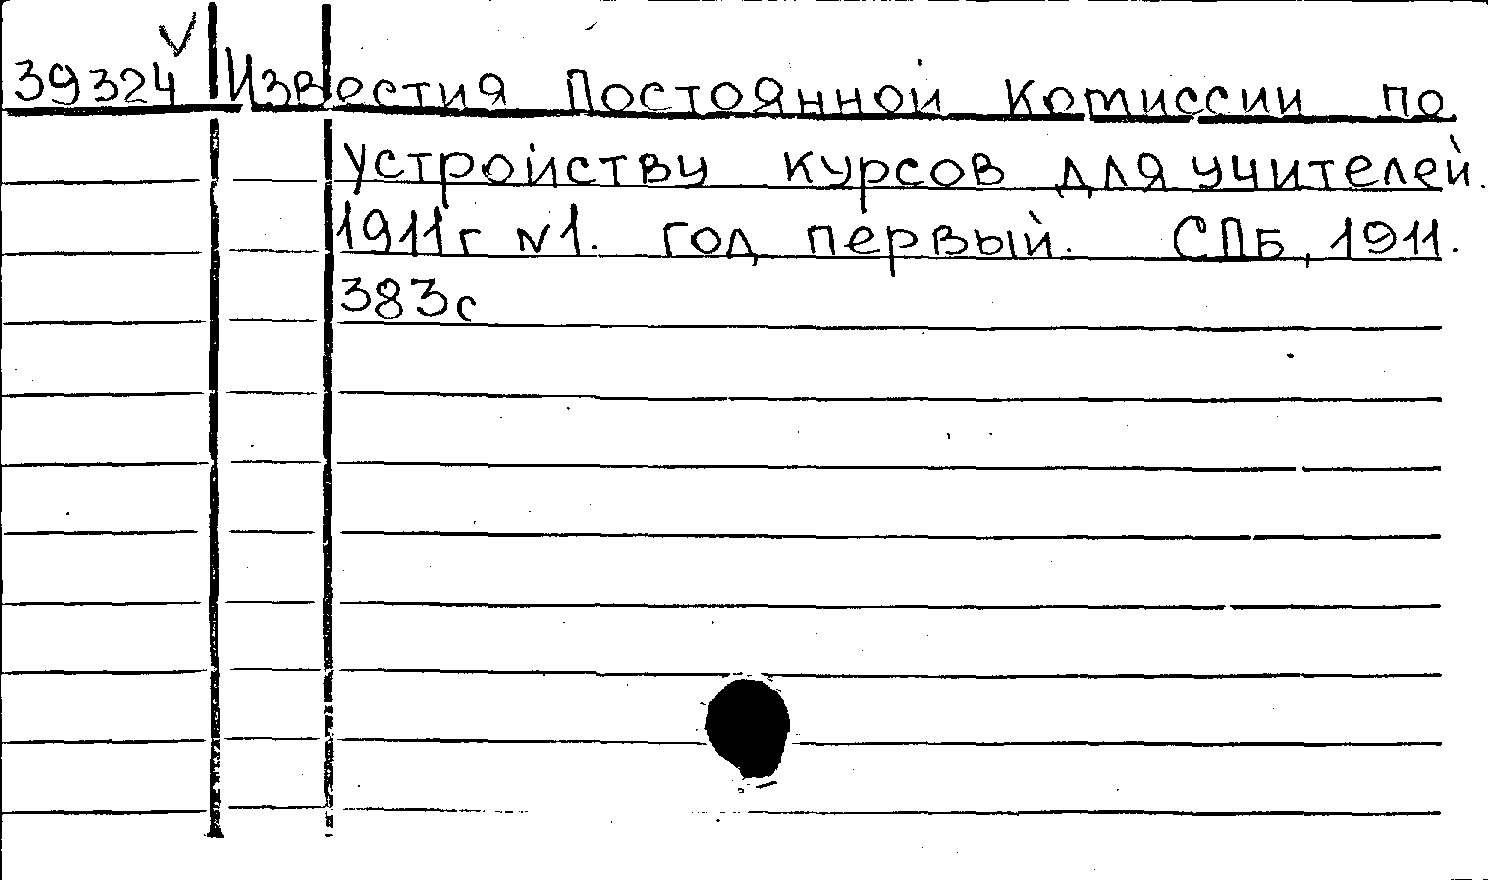 39324 Известия Постоянной Комиссии по
устройству курсов для учителей.
1911г N1. год первый. СПБ, 1911.
383с